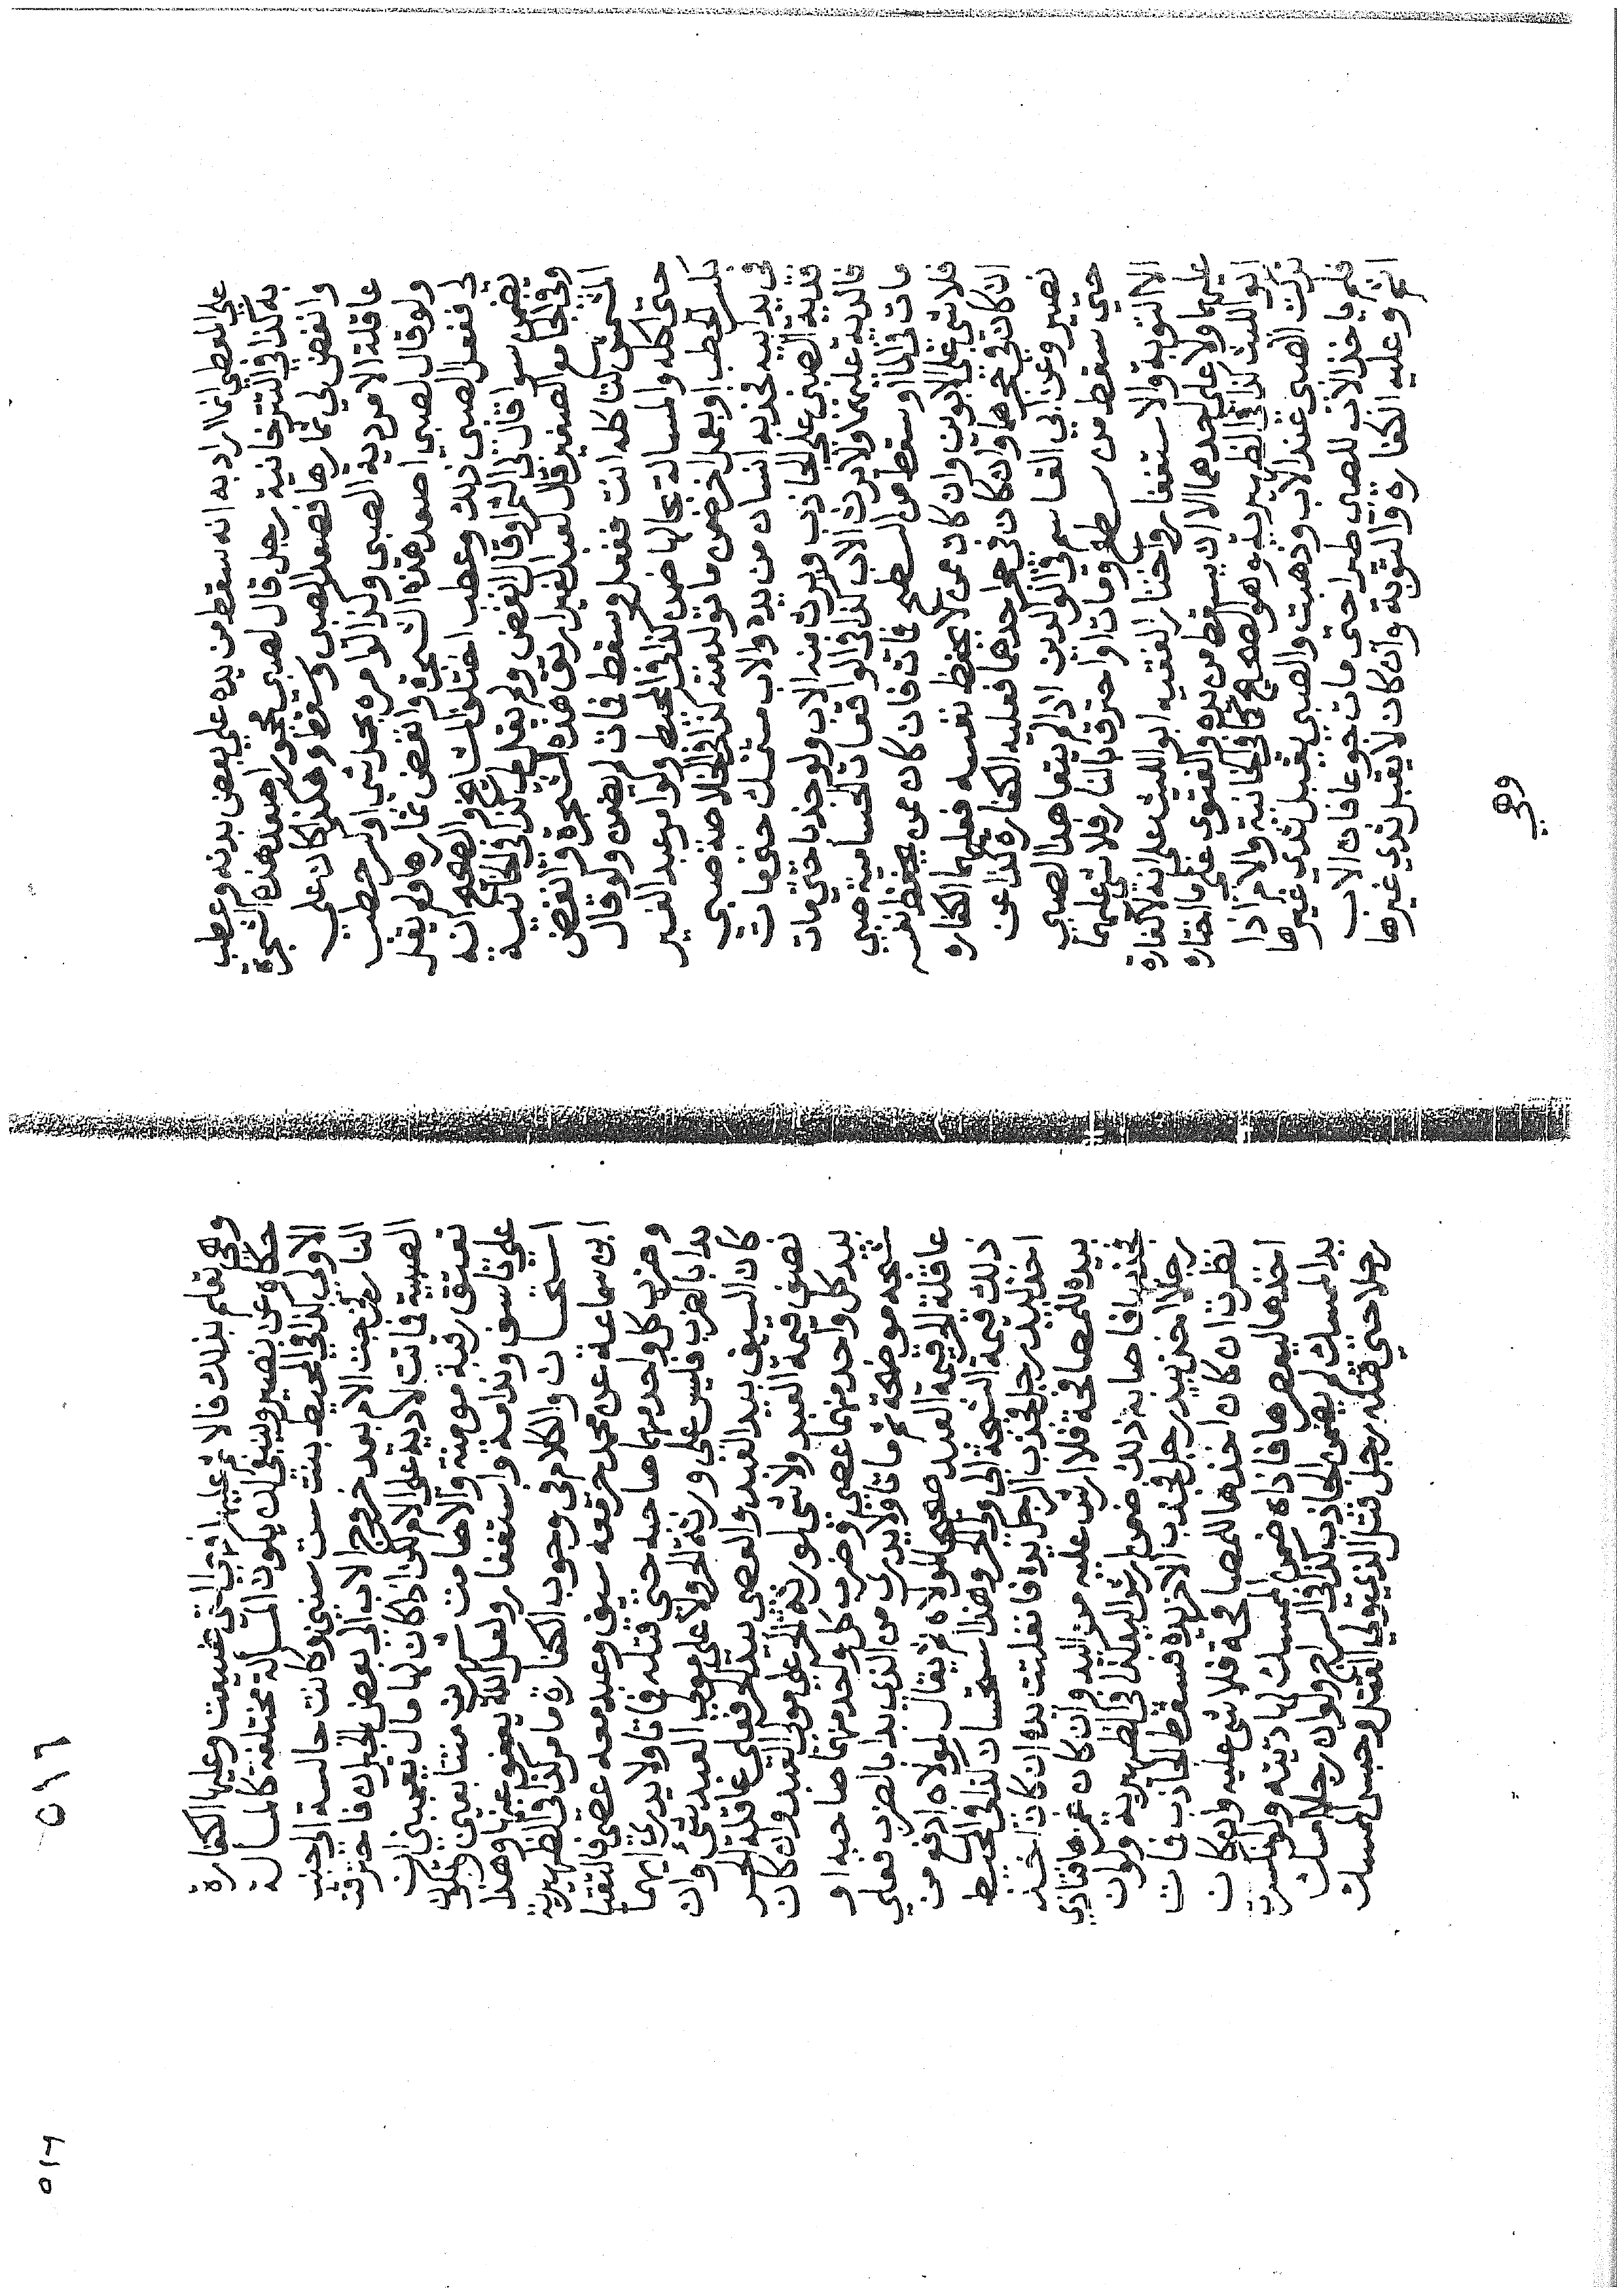 علي المعطي انما اراد به انه سقط من يده علي بعض بدنه وعطب
به كذا في التترخانية رجل قال لصبي محجور اصعد هذه الشجرة
وانفض لي ثمارها فصعد الصبي وسقط وهلك كان علي
عاقلة الامر دية الصبي وكذا لو امره بحمل شي او كسر حطب
ولو قال لصبي اصعد هذه الشجرة وانفض ثمارها ولم يقل
لي ففعل الصبي ذلك وعطب اختلف المشايخ والصحيح انه
يضمن سوا قال لي الثمر او قال انفض ولم يقل لي كذا في الخانية
وفي الجامع الصغير قال لعبد الغير ارتق هذه الشجرة وانفض
المشمش لتاكله انت ففعل وسقط فمات لم يضمن ولو قال
حتى اكله والمسالة بحالها ضمن كذا في المحيط ولو امر عبد الغير
بكسر الحطب او بعمل اخر ضمن ما تولد منه كذا في الخلاصة صبي
في يد ابيه فجذبه انسان من يده والاب متمسك حتى مات
فدية الصبي علي الجاذب ويرث منه الاب ولو جذباه حتي مات
فالدية عليهما ولا يرث الاب كذا في الواقعات الحسامية صبي
مات في الما او سقط من السطح فمات فان كان ممن يحفظ نفسه
فلا شي علي الابوين وان كان ممن لا يحفظ نفسه فعليهما الكفارة
ان كان في حجرهما وان كان في حجر احدهما فعليه الكفارة كذا عن
نصير وعن ابي القاسم في الوالدين اذا لم يتعاهدا الصبي
حتي سقط من سطح ومات او احترق بالنار فلا شي عليهما
الا التوبة والاستغفار واختار الفقيه ابو الليث علي انه لا كفارة
عليهما ولا علي احدهما الا ان يسقط من يده والفتوي علي ما اختاره
ابو الليث كذا في الظهيرية وهو الصحيح كما في الخانية والام اذا
تركت الصبي عند الاب وذهبت والصبي يقبل ثدي غيرها
فلم ياخذ الاب للصبي ظيرا حتى مات جوعا فان الاب
اثم وعليه الكفارة والتوبة وان كان لا يقبل ثدي غيرها
وهي
وهي تعلم بذلك فالاثم عليها التي ضيعت وعليها الكفارة
حكاه عن نصير وينبغي ان يكون المسألة مختلفة كالمسالة
الاولى كذا في المحيط بنت ست سنين وكانت جالسة الي جنب
النار فخرجت الام بعد خروج الاب الي بعض الجيران فاحترقت
الصبية فماتت لا دية علي الام لكن اذا كان لها مال يعجبني ان
تعتق رقبة مومنة والا صامت شهرين متتابعين وتكون
علي تاسف وندامة واستغفار ولعل الله يعفو عنها وهذا
استحسان والكلام في وجوب الكفارة ما مر كذا في الظهيرية
ابن سماعة عن محمد حر معه سيف وعبد معه عصي فالتقيا
وضرب كل واحد منهما صاحبه حتى قتله فماتا ولا يدري ايهما
بدا بالضرب فليس علي ورثة الحر ولا علي مولي العبد شي وان
كان السيف بيد العبد والعصي بيد الحر فعلي عاقلة الحر
نصف قيمة العبد ولا شي لورثة الحر علي مولي العبد وان كان
بيد كل واحد منهما عصي وضرب كل واحد منهما صاحبه او
شجه موضحة ثم ماتا ولا يدري من الذي بدا بالضرب فعلي
عاقلة الحر قيمة العبد صحيحا لمولاه ثم يقال لمولاه ادفع من
ذلك قيمة الشجة الي ولي الحر وهذا استحسان كذا في المحيط
اخذ بيد رجل فجذب الرجل يده فانفلتت يده ان كان اخذ
بيده للمصافحة فلا ارش عليه من اليد وان كان غمزها فتاذي
فجذبها فاصابه ذلك ضمن ارش اليد كذا في الظهيرية ولو ان
رجلا اخذ بيد رجل فجذب الاخر يده فسقط الجاذب فمات
نظرت ان كان اخذها للمصافحة فلا شي عليه وان كان
اخذها ليعصرها فاذاه ضمن الممسك لها ديته ولو انكسرت
يد الممسك لم يضمن الجاذب كذا في السراج ولو ان رجلا امسك
رجلا حتي قتله رجل قتل الذي ولي القتل وحبس الممسك
٥١٦
٥١٦